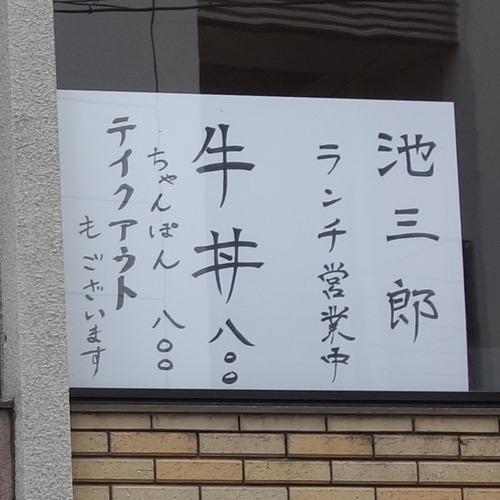 池三郎
ランチ営業中
牛丼八〇〇
ちゃんぽん 八〇〇
テイクアウト
もございます